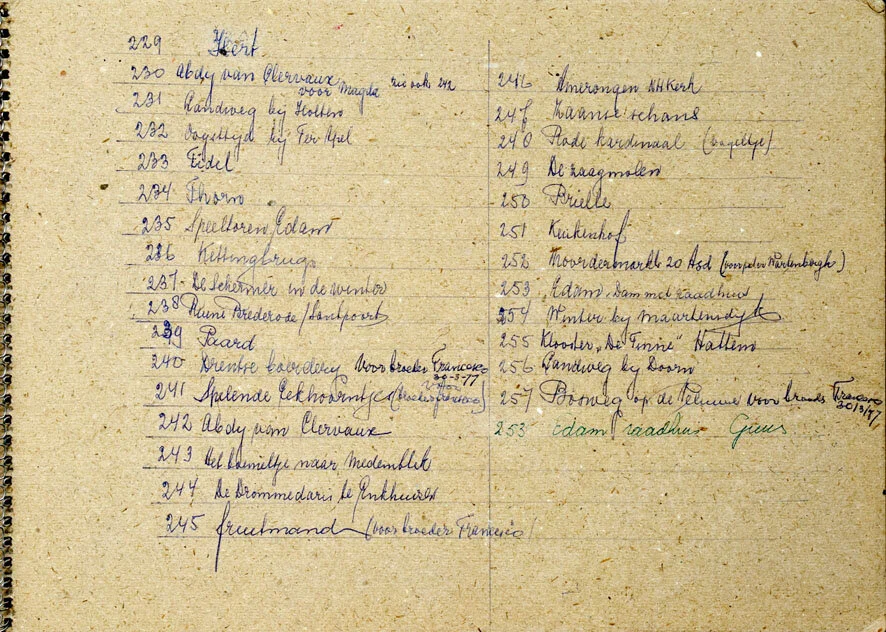 229 Hert
230 Abdy van Clervaux zie ook 242
voor Magda
231 Landweg bij Holten
232 Oogsttijd bij Ter Apel
233 Ezdel
234 Thorn
235 Speeltoren Edam
236 Kettingbrug
237 De Schermer in de winter
238 Ruine Brederode / Santpoort
239 Paard
240 Drentse boerderij voor broeder Francesco
30-3-77
241 Spelende Eekhoorntjes
242 Abdy van Clervaux
243 Het boemeltje naar Medemblik
244 De Drommedaris te Enkhuizen
245 fruitmand (voor broeder Francesco)
246 Amerongen NH Kerk
247 Zaanse schans
248 Rode Kardinaal (vogeltje)
249 De zaagmolen
250 Brielle
251 Keukenhof
252 Noordermarkt 20 Asd
253 Edam Dam met raadhuis
254 Winter bij Maartensdyk
255 Klooster "De Hattem
256 Landweg by Doorn
257 Bosweg op de Veluwe voor broeder Francesco
30/3/77
253 Edam raadhuis Guus